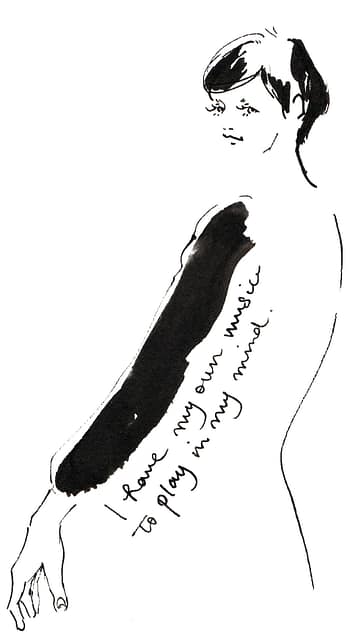 I have my own music
to play in my mind.